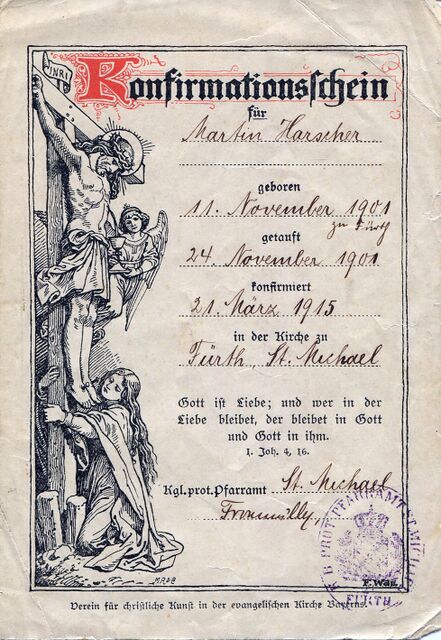 INRI
Konfirmationsschein
für
Martin Harscher
geboren
11. November 1901
zu Fürth
getauft
24. November 1901
konfirmiert
21. März 1915
in der Kirche zu
Fürth, St. Michael
Gott ist Liebe; und wer in der
Liebe bleibet, der bleibet in Gott
und Gott in ihm.
1. Joh. 4, 16.
Kgl. prot. Pfarramt St. Michael
K. B. PROT. PFARRAMT ST. MICHAEL
FÜRTH
Verein für christliche Kunst in der evangelischen Kirche Bayerns.